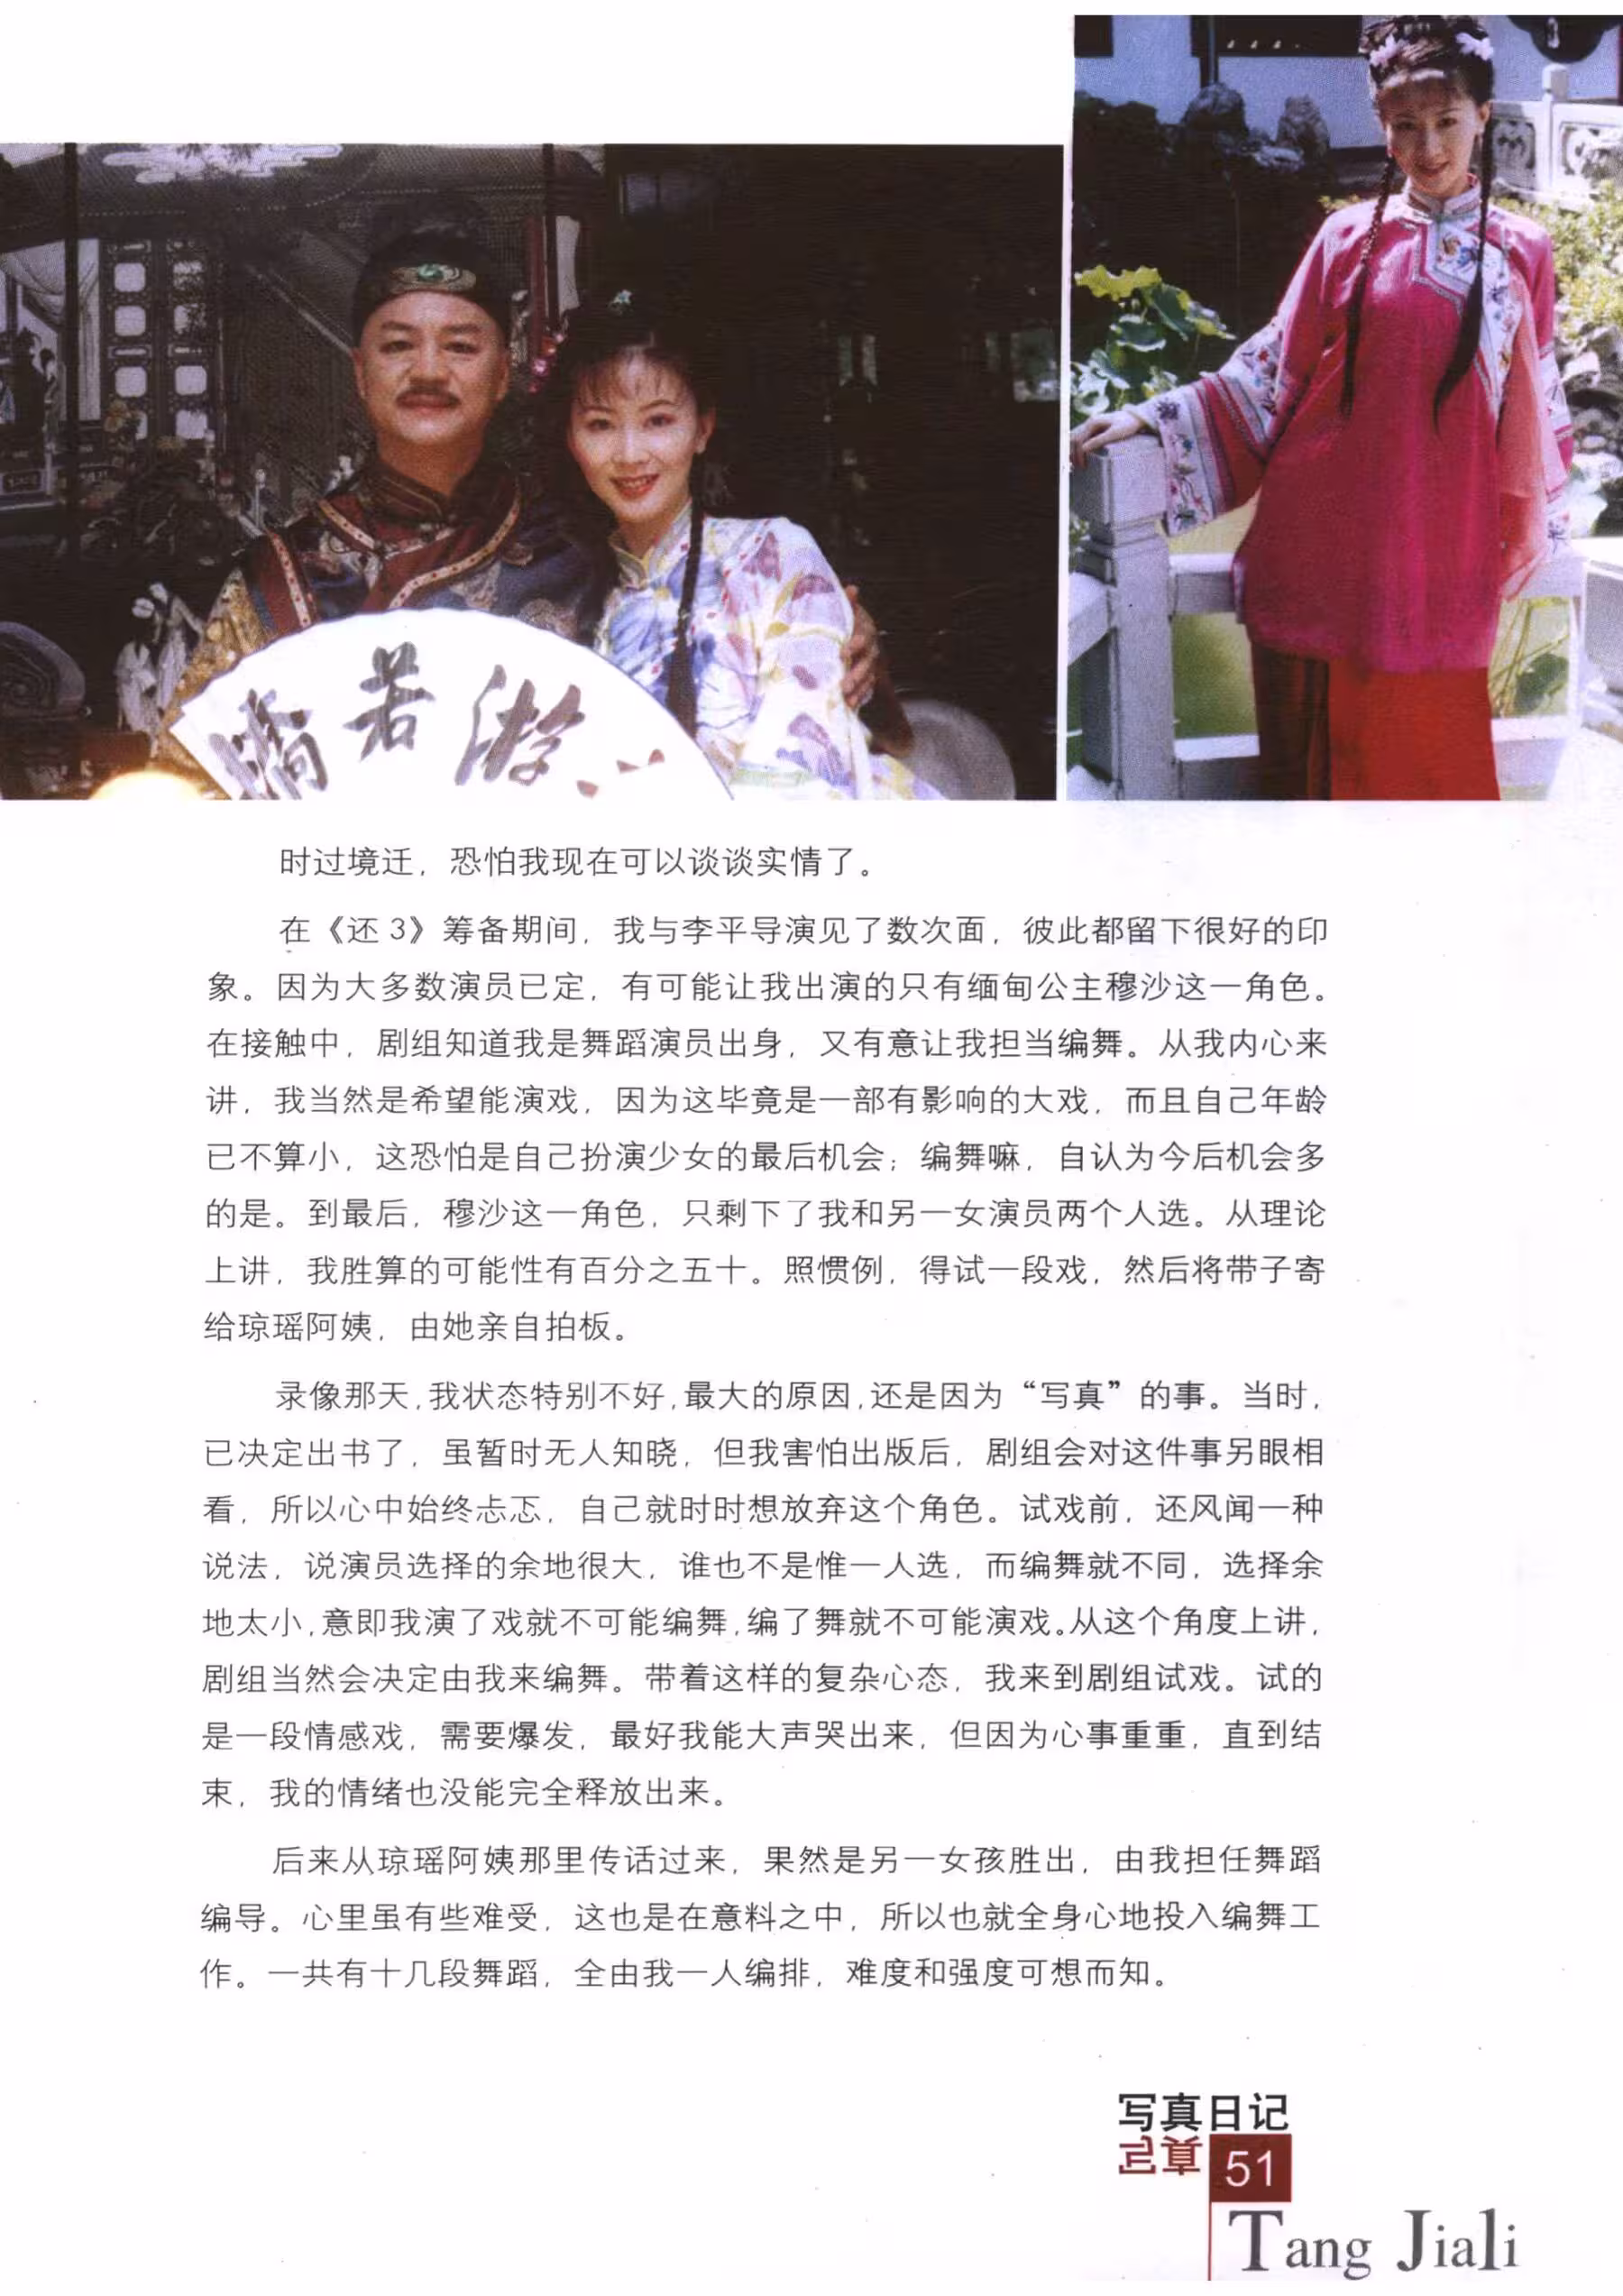 若游
时过境迁，恐怕我现在可以谈谈实情了。
在《还3》筹备期间，我与李平导演见了数次面，彼此都留下很好的印
象。因为大多数演员已定，有可能让我出演的只有缅甸公主穆沙这一角色。
在接触中，剧组知道我是舞蹈演员出身，又有意让我担当编舞。从我内心来
讲，我当然是希望能演戏，因为这毕竟是一部有影响的大戏，而且自己年龄
已不算小，这恐怕是自己扮演少女的最后机会；编舞嘛，自认为今后机会多
的是。到最后，穆沙这一角色，只剩下了我和另一女演员两个人选。从理论
上讲，我胜算的可能性有百分之五十。照惯例，得试一段戏，然后将带子寄
给琼瑶阿姨，由她亲自拍板。
录像那天，我状态特别不好，最大的原因，还是因为“写真”的事。当时，
已决定出书了，虽暂时无人知晓，但我害怕出版后，剧组会对这件事另眼相
看，所以心中始终忐忑，自己就时时想放弃这个角色。试戏前，还风闻一种
说法，说演员选择的余地很大，谁也不是惟一人选，而编舞就不同，选择余
地太小，意即我演了戏就不可能编舞，编了舞就不可能演戏。从这个角度上讲，
剧组当然会决定由我来编舞。带着这样的复杂心态，我来到剧组试戏。试的
是一段情感戏，需要爆发，最好我能大声哭出来，但因为心事重重，直到结
束，我的情绪也没能完全释放出来。
后来从琼瑶阿姨那里传话过来，果然是另一女孩胜出，由我担任舞蹈
编导。心里虽有些难受，这也是在意料之中，所以也就全身心地投入编舞工
作。一共有十几段舞蹈，全由我一人编排，难度和强度可想而知。
写真日记
写真
51
Tang Jiali